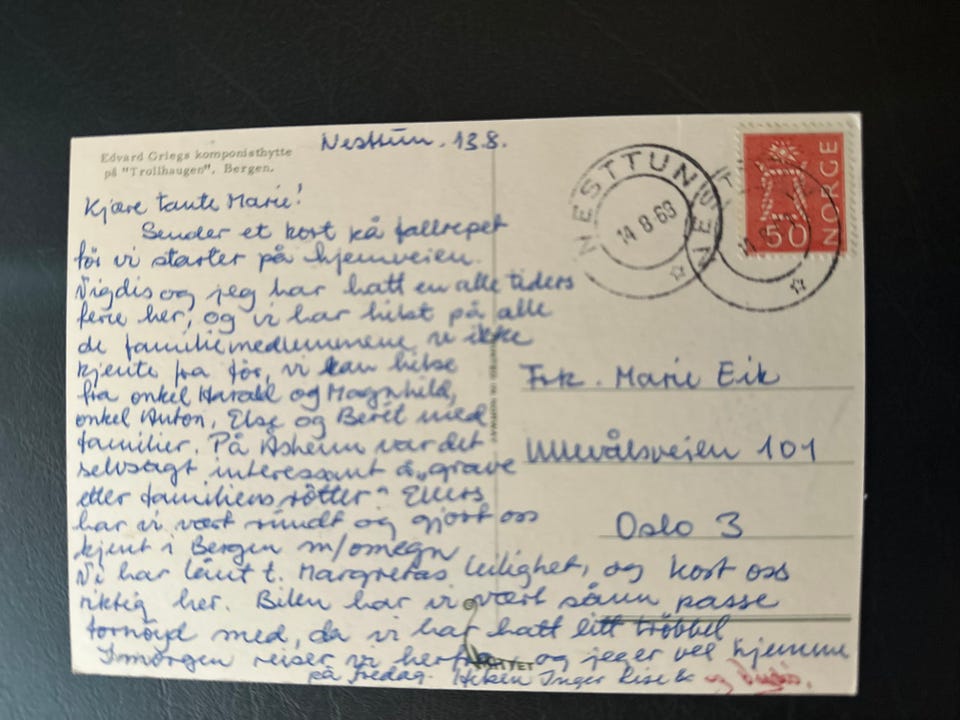 Edvard Griegs komponisthytte
på "Trollhaugen", Bergen.
Nesttun. 13.8.
Kjære tante Marie!
Sender et kort på fallrepet
før vi starter på hjemveien.
Vigdis og jeg har hatt en alle tiders
ferie her, og vi har hilst på alle
de familiemedlemmene vi ikke
kjente fra før, vi kan hilse
fra onkel Harald og Magnhild,
onkel Anton, Else og Berit med
familier. På Åsheim var det
selvsagt interessant å „grave
etter familiens røtter" Ellers
har vi vært rundt og gjort oss
kjent i Bergen m/omegn
Vi har lånt t. Margretas leilighet, og kost oss
riktig her. Bilen har vi vært sånn passe
fornøyd med, da vi har hatt litt trøbbel
Imorgen reiser vi herfra, og jeg er vel hjemme
på fredag. Hilsen Inger Lise &
og Vigdis.
NESTTUN
14 8 68
NORGE
50
Frk. Marie Eik
Ullevålsveien 101
Oslo 3